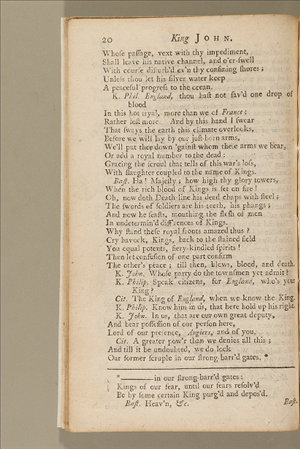 20 King JOHN.
Whose passage, vext with thy impediment,
Shall leave his native channel, and o'er-swell
With course disturb'd ev'n thy confining shores;
Unless thou let his silver water keep
A peaceful progress to the ocean.
K. Phil. England, thou hast not sav'd one drop of
blood
In this hot tryal, more than we of France:
Rather lost more. And by this hand I swear
That sways the earth this climate overlooks,
Before we will lay by our just-born arms,
We'll put thee down 'gainst whom these arms we bear,
Or add a royal number to the dead:
Gracing the scroul that tells of this war's loss,
With slaughter coupled to the name of Kings.
Bast. Ha! Majesty; how high thy glory towers,
When the rich blood of Kings is set on fire!
Oh, now doth Death line his dead chaps with steel;
The swords of soldiers are his teeth, his phangs;
And now he feasts, mouthing the flesh of men
In undetermin'd diff'rences of Kings.
Why stand these royal fronts amazed thus?
Cry havock, Kings, back to the stained field
You equal potents, fiery-kindled spirits!
Then let confusion of one part confirm
The other's peace; till then, blows, blood, and death.
K. John. Whose party do the townsmen yet admit?
K. Philip. Speak citizens, for England, who's your
King?
Cit. The King of England, when we know the King.
K. Philip. Know him in us, that here hold up his right.
K. John. In us, that are our own great deputy,
And bear possession of our person here,
Lord of our presence, Angiers, and of you.
Cit. A greater pow'r than we denies all this;
And till it be undoubted, we do lock
Our former scruple in our strong-barr'd gates. *
* in our strong-barr'd gates:
Kings of our fear, until our fears resolv'd
Be by some certain King purg'd and depos'd.
Bast. Heav'n, &c. Bast.